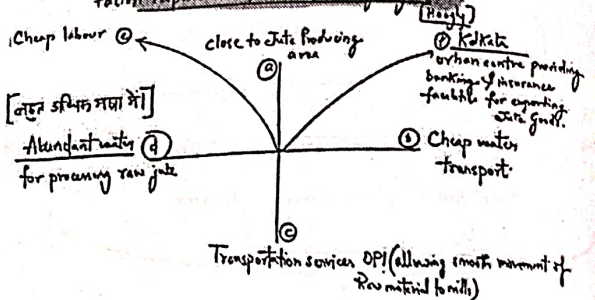 [Hoogly]
Cheap labour (e)
close to Jute Producing
area
(a)
(f) Kolkata
urban centre providing
banking & insurance
facilities for exporting
Jute Goods.
Abundant water (d)
for processing raw jute
(b) Cheap water
transport.
(c)
Transportation services OP! (allowing smooth movement of
Raw material to mills)